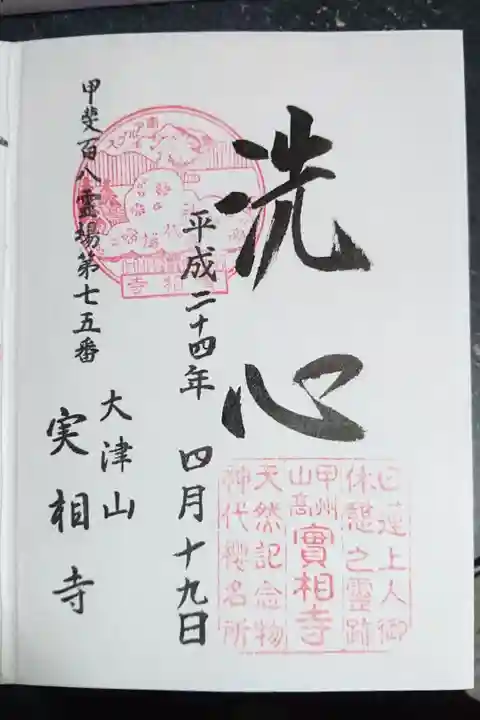 洗心
日蓮上人御
休憩之霊跡
甲州
山高
實相寺
天然記念物
神代櫻名所
平成二十四年 四月十九日
甲斐百八霊場第七五番
大津山
実相寺